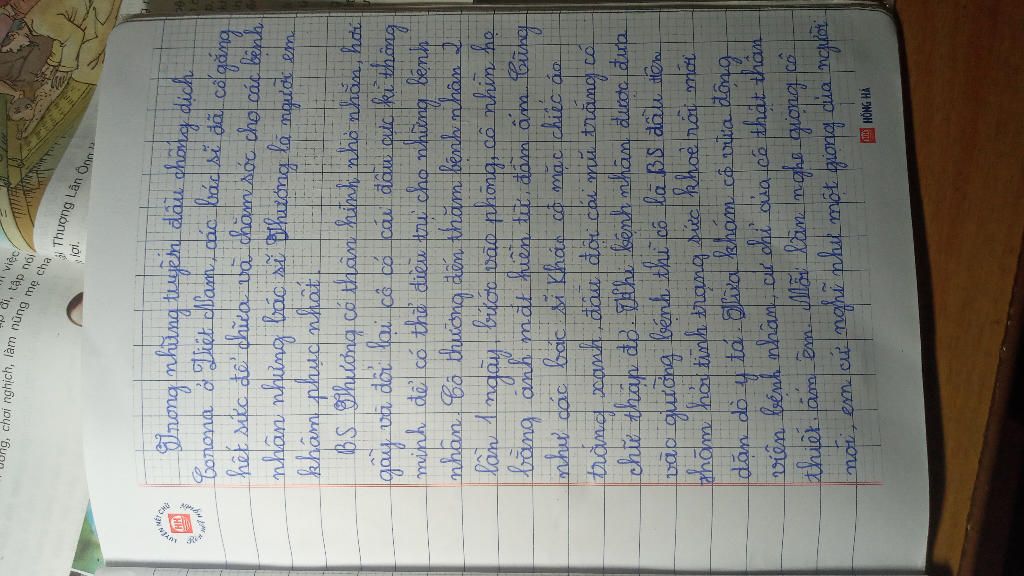 Trong những tuyến đầu chống dịch
Corona ở Việt Nam, các bác sĩ đã cố gắng
hết sức để chữa và chăm sóc cho các bệnh
nhân nhưng bác sĩ Thương là người em
khâm phục nhất.
BS Thương có thân hình nhỏ nhắn, hơi
gầy và đổi lại cô có cái đầu cực kì thông
minh để có thể điều trị cho những bệnh
nhân. Cô thường đến thăm bệnh nhân 2
lần 1 ngày, bước vào phòng, cô nhìn họ
bằng ánh mắt hiền từ đầm ấm. Cũng
như các bác sĩ khác cô mặc chiếc áo
trắng xanh, đầu đội cái mũ trắng có
chữ thập đỏ. Khi bệnh nhân được đưa
vào giường bệnh thì cô là BS đầu tiên
thăm hỏi tình trạng sức khoẻ rồi mới
dặn dò y tá. Vừa khám cô vừa động
viên bệnh nhân, cử chỉ của cô thật thân
thiết ấm êm. Mỗi lần nghe giọng cô
nói, em cứ nghĩ như một giọng của người
LUYỆN NÉT CHỮ
Rèn nết người
HH
HỒNG HÀ
Thượng Lãn Ông
ương, chơi nghịch, làm nũng mẹ cha